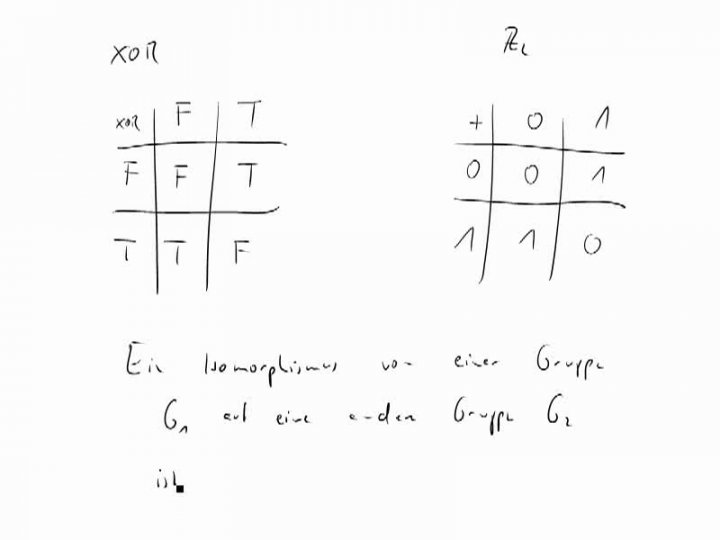 XOR ℤ₂
XOR F T
F F T
T T F
+ 0 1
0 0 1
1 1 0
Ein Isomorphismus von einer Gruppe
G₁ auf eine andere Gruppe G₂
ist